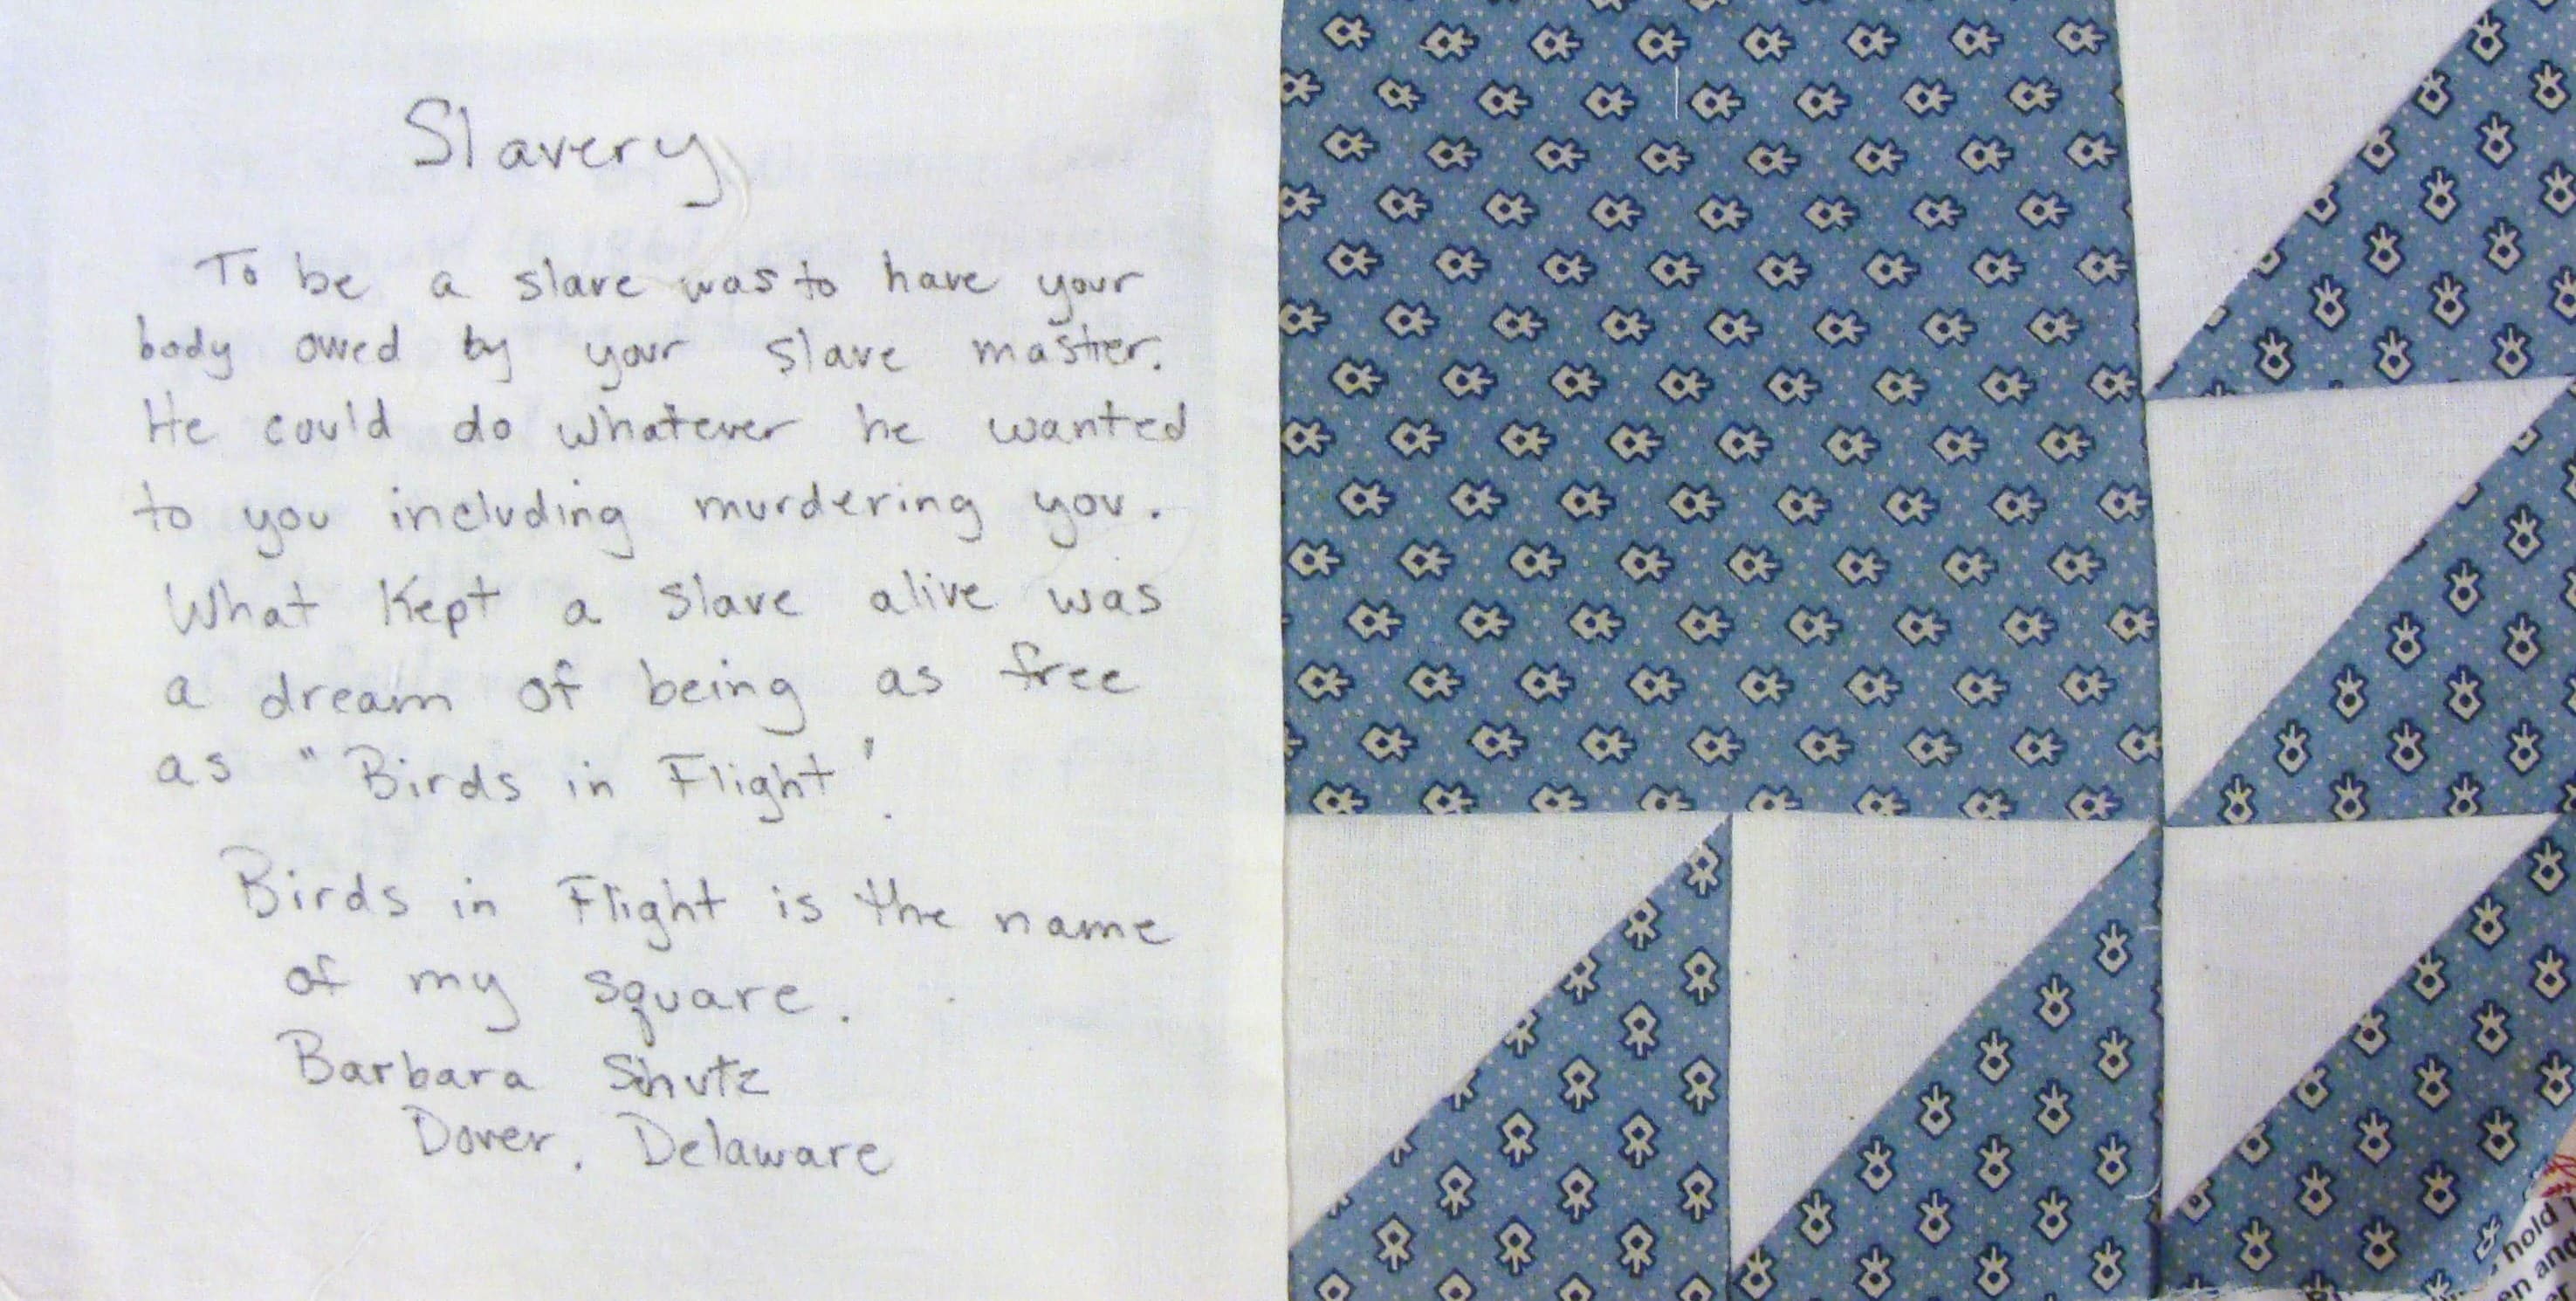 Slavery
To be a slave was to have your
body owed by your slave master.
He could do whatever he wanted
to you including murdering you.
What kept a slave alive was
a dream of being as free
as "Birds in Flight".
Birds in Flight is the name
of my square.
Barbara
Dover, Delaware
hold
en and